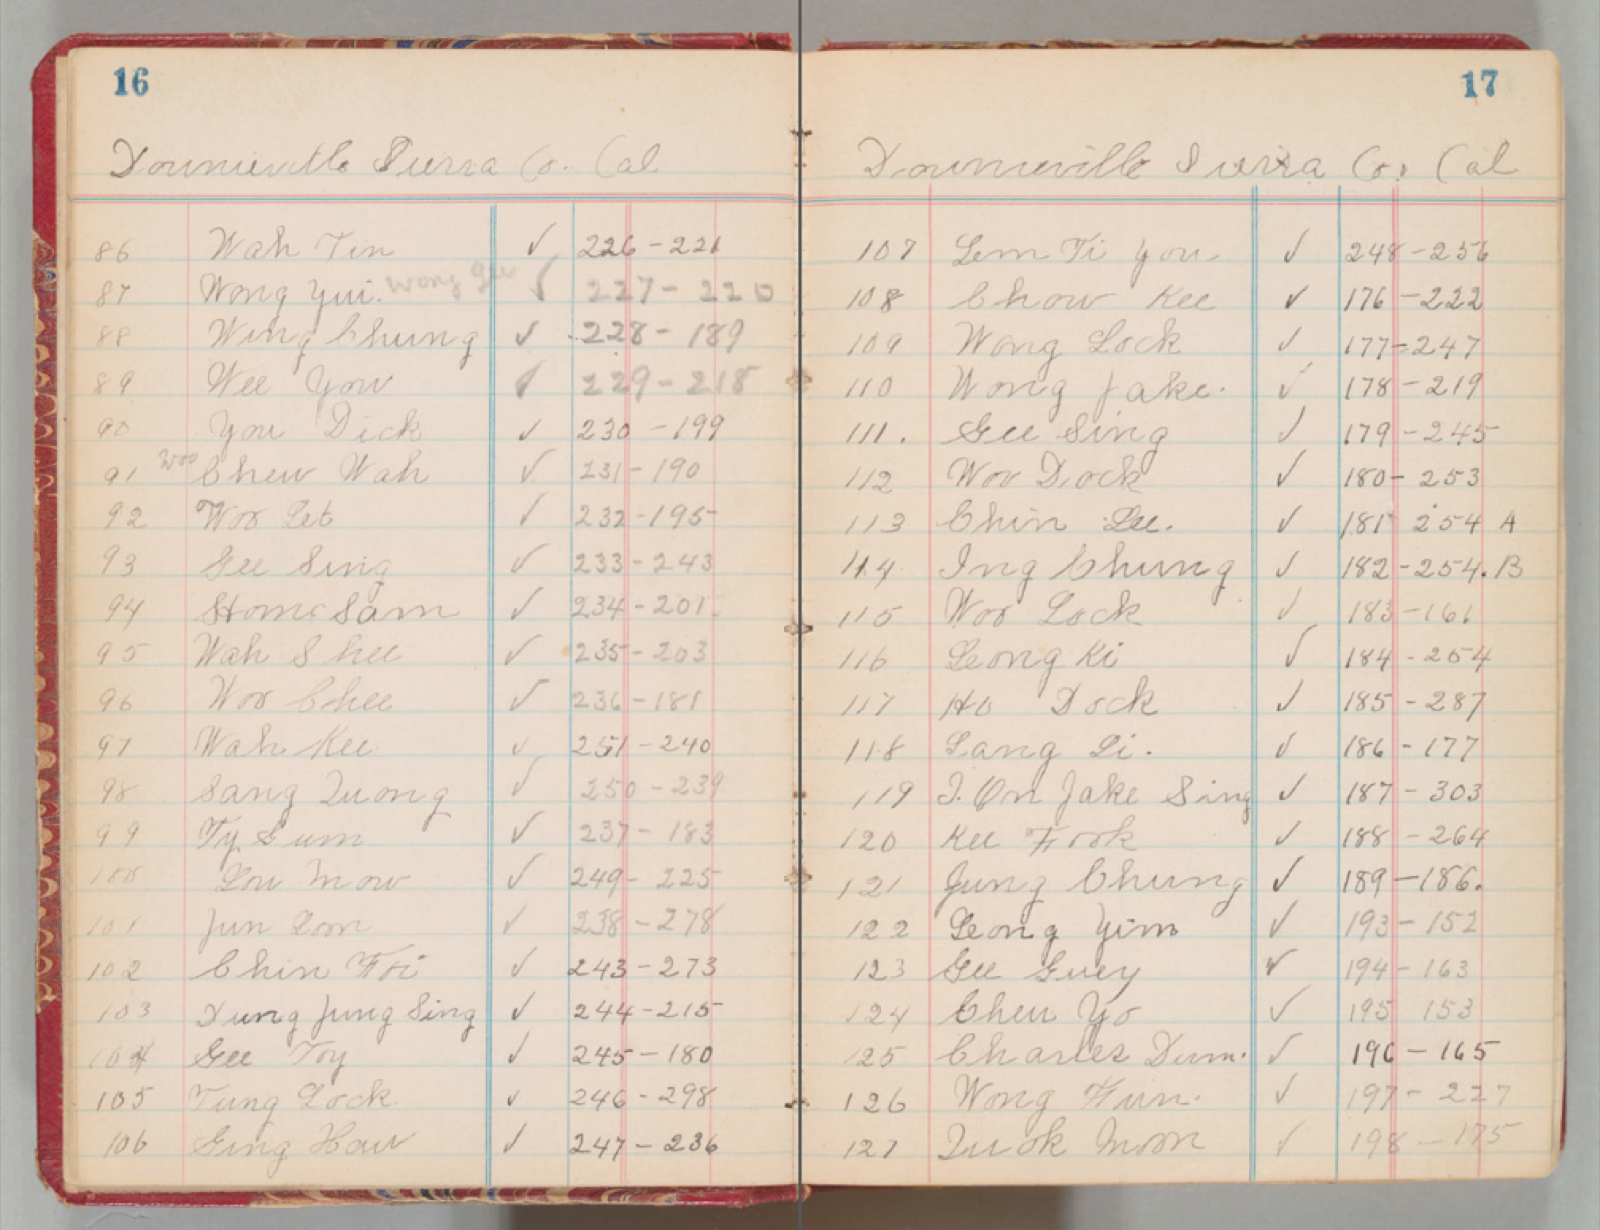 16
Downieville Sierra Co. Cal
86 Wah Tin ✓ 226-221
87 Wong Yui. Wong Gee ✓ 227-220
88 Wing Chung ✓ 228-189
89 Wee You ✓ 229-218
90 You Dick ✓ 230-199
91 Woo Chew Wah ✓ 231-190
92 Woo Let ✓ 232-195
93 Gee Sing ✓ 233-243
94 Sam ✓ 234-201.
95 Wah Shee ✓ 235-203
96 Woo Chee ✓ 236-181
97 Wah Kee ✓ 251-240
98 Sang Quong ✓ 250-239
99 Ty Gum ✓ 237-183
100 Low Mow ✓ 249-225
101 Jun Lom ✓ 238-278
102 Chin Foi ✓ 243-273
103 Dung Jung Sing ✓ 244-215
104 Gee Toy ✓ 245-180
105 Tung Lock ✓ 246-298
106 Ging How ✓ 247-236
17
Downieville Sierra Co. Cal
107 Lem Ti You ✓ 248-256
108 Chow Kee ✓ 176-222
109 Wong Lock ✓ 177-247
110 Wong Jake. ✓ 178-219
111. Gee Sing ✓ 179-245
112 Woo Dock ✓ 180-253
113 Chin Lee. ✓ 181-254 A
114 Ing Chung ✓ 182-254.B
115 Woo Lock ✓ 183-161
116 Leong Ki ✓ 184-254
117 Ho Dock ✓ 185-287
118 Lang Li. ✓ 186-177
119 I. On Jake Sing ✓ 187-303
120 Kee Fook ✓ 188-264
121 Jung Chung ✓ 189-186.
122 Leong Yim ✓ 193-152
123 Gee Guey ✓ 194-163
124 Chew Yo ✓ 195 153
125 Charles Dum. ✓ 196-165
126 Wong Fun. ✓ 197-227
127 Quok Moon ✓ 198-175